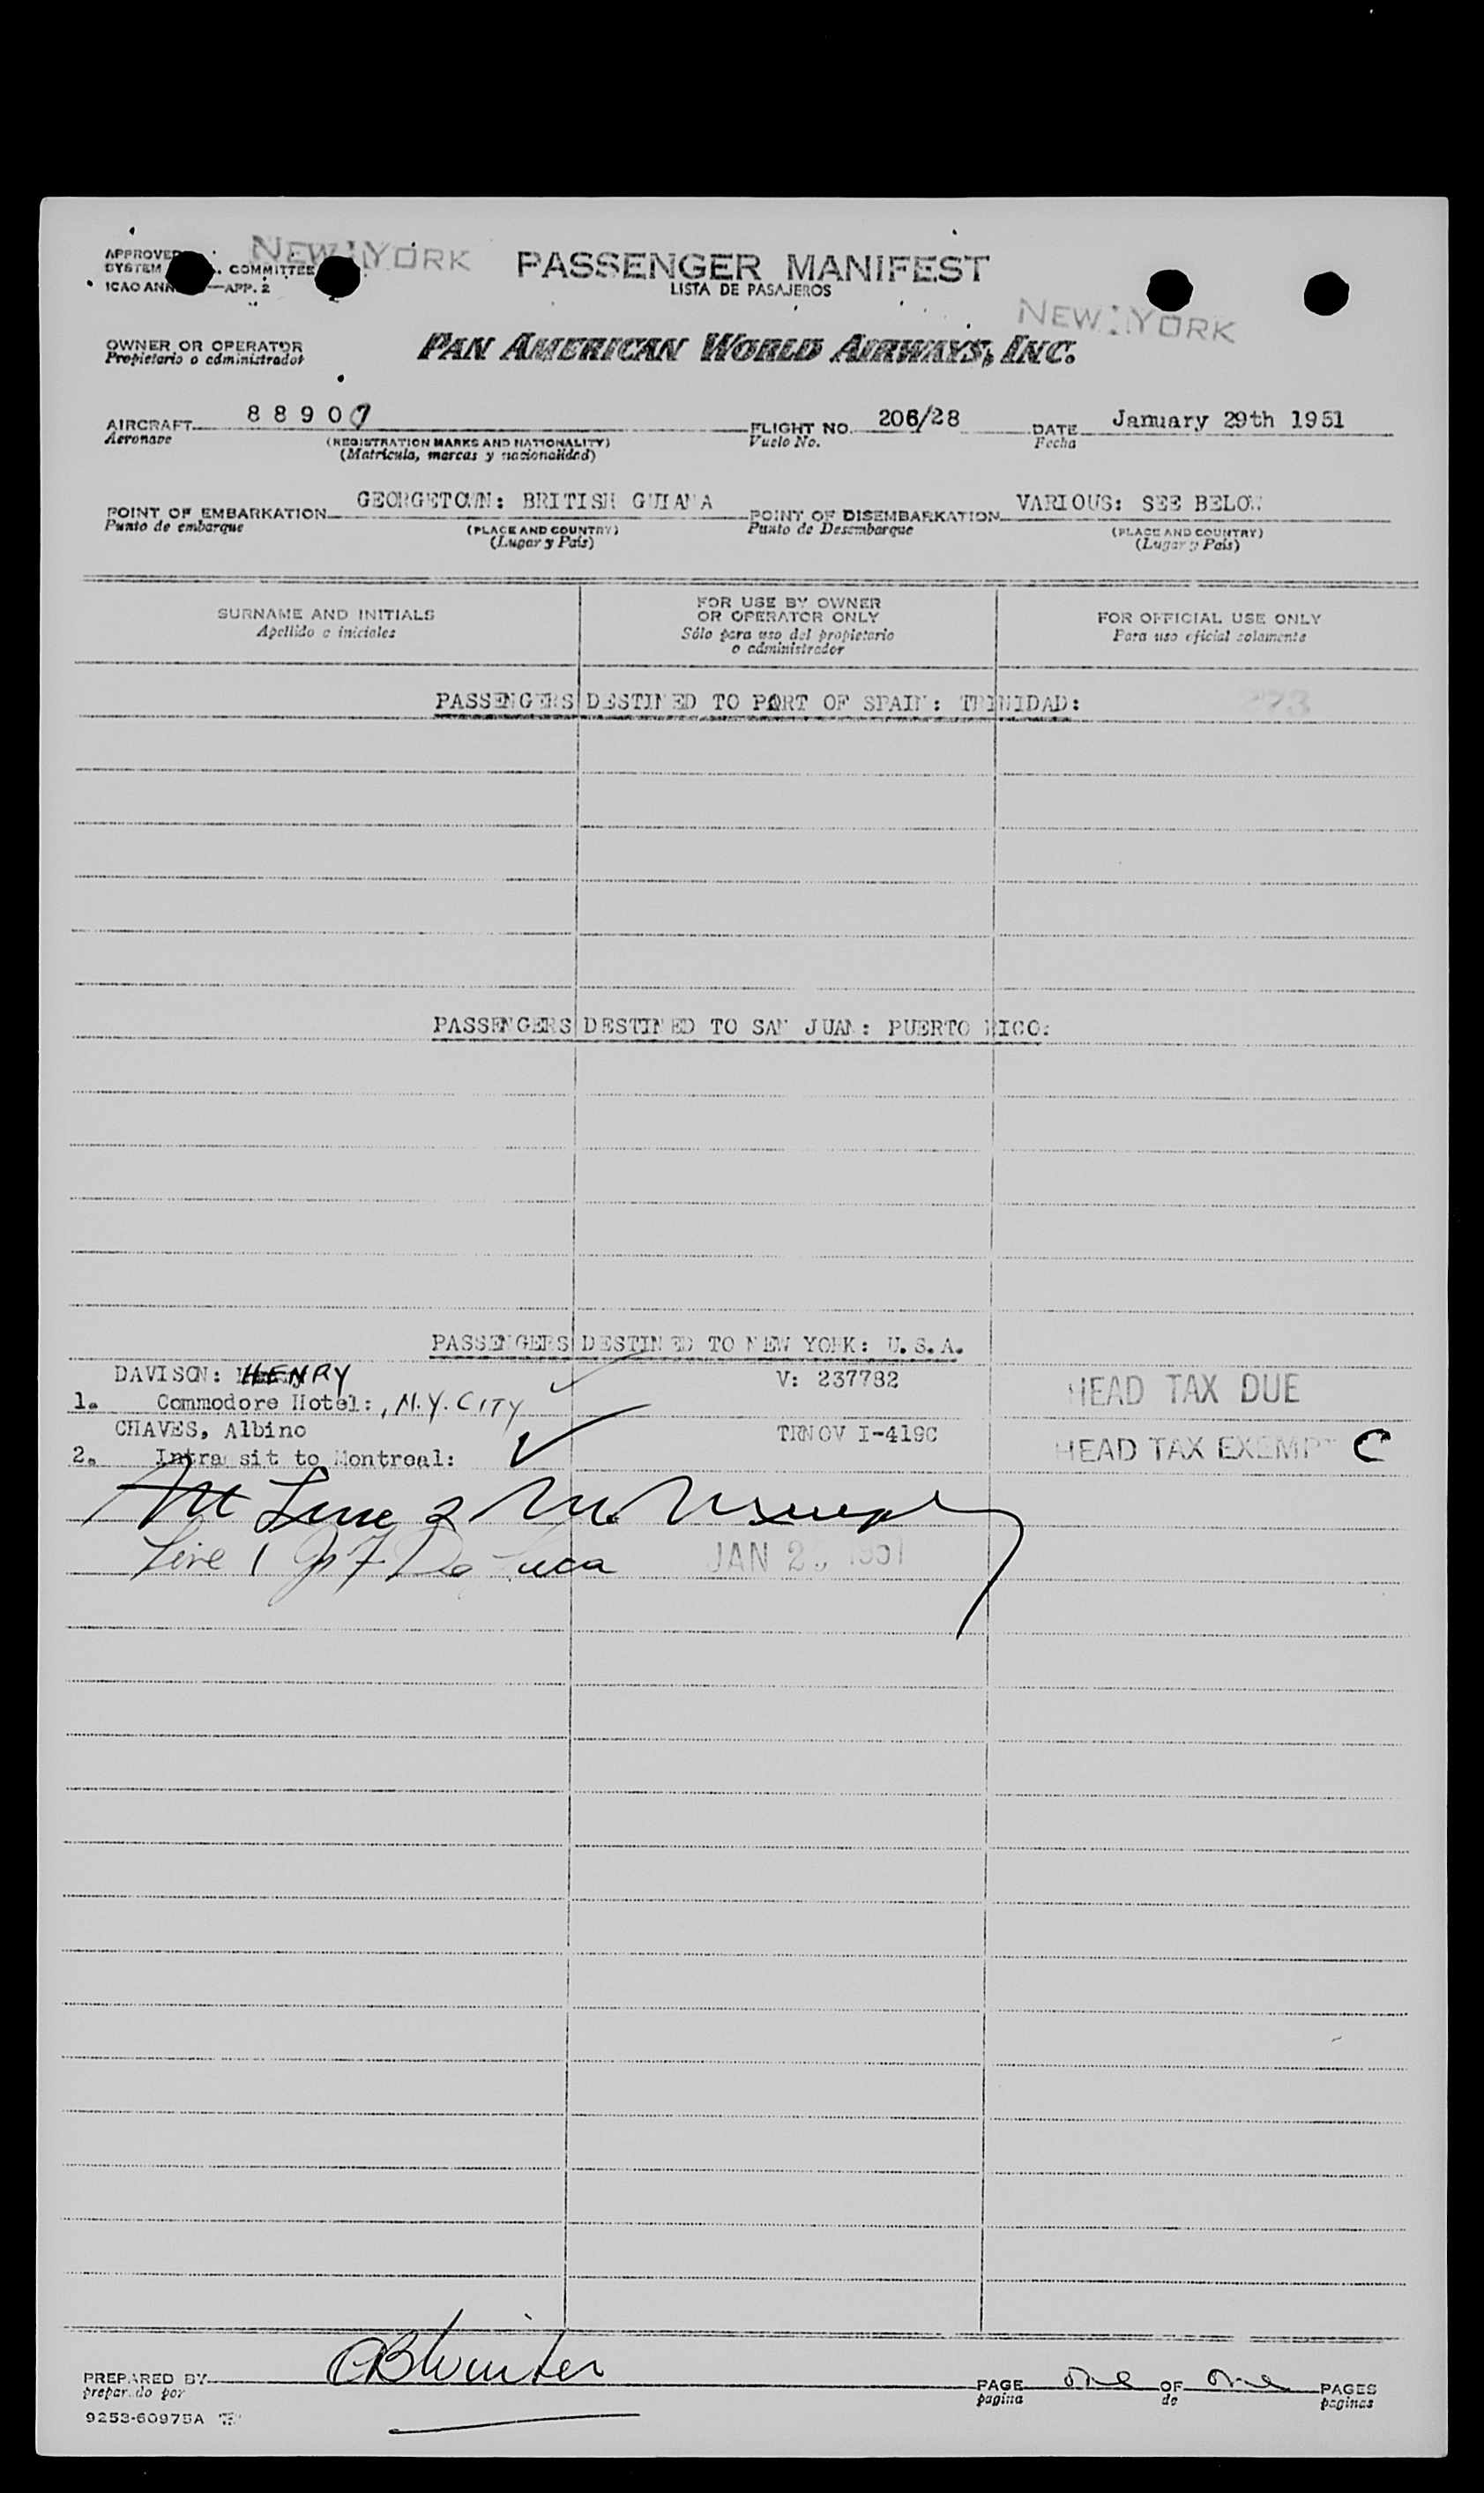 NEW YORK
APPROVED
SYSTEM COMMITTEE
ICAO ANN —APP. 2
PASSENGER MANIFEST
LISTA DE PASAJEROS
NEW YORK
OWNER OR OPERATOR
Propietario o administrador
PAN AMERICAN WORLD AIRWAYS, INC.
AIRCRAFT 88907 FLIGHT NO. 206/28 DATE January 29th 1951
Aeronave (REGISTRATION MARKS AND NATIONALITY) Vuelo No. Fecha
(Matrícula, marcas y nacionalidad)
POINT OF EMBARKATION GEORGETOWN: BRITISH GUIANA POINT OF DISEMBARKATION VARIOUS: SEE BELOW
Punto de embarque (PLACE AND COUNTRY) Punto de Desembarque (PLACE AND COUNTRY)
(Lugar y País) (Lugar y País)
SURNAME AND INITIALS
Apellido e iniciales
FOR USE BY OWNER
OR OPERATOR ONLY
Sólo para uso del propietario
o administrador
FOR OFFICIAL USE ONLY
Para uso oficial solamente
PASSENGERS DESTINED TO PORT OF SPAIN: TRINIDAD:
PASSENGERS DESTINED TO SAN JUAN: PUERTO RICO:
PASSENGERS DESTINED TO NEW YORK: U.S.A.
DAVISON: HENRY V: 237782 HEAD TAX DUE
1. Commodore Hotel:, N.Y. CITY
CHAVES, Albino TRNOV I-419C HEAD TAX EXEMPT C
2. Intransit to Montreal:
Line 2
Line 1 De Luca JAN 1951
PREPARED BY CB Winter PAGE one OF one PAGES
preparado por pagina de paginas
9253-60975A